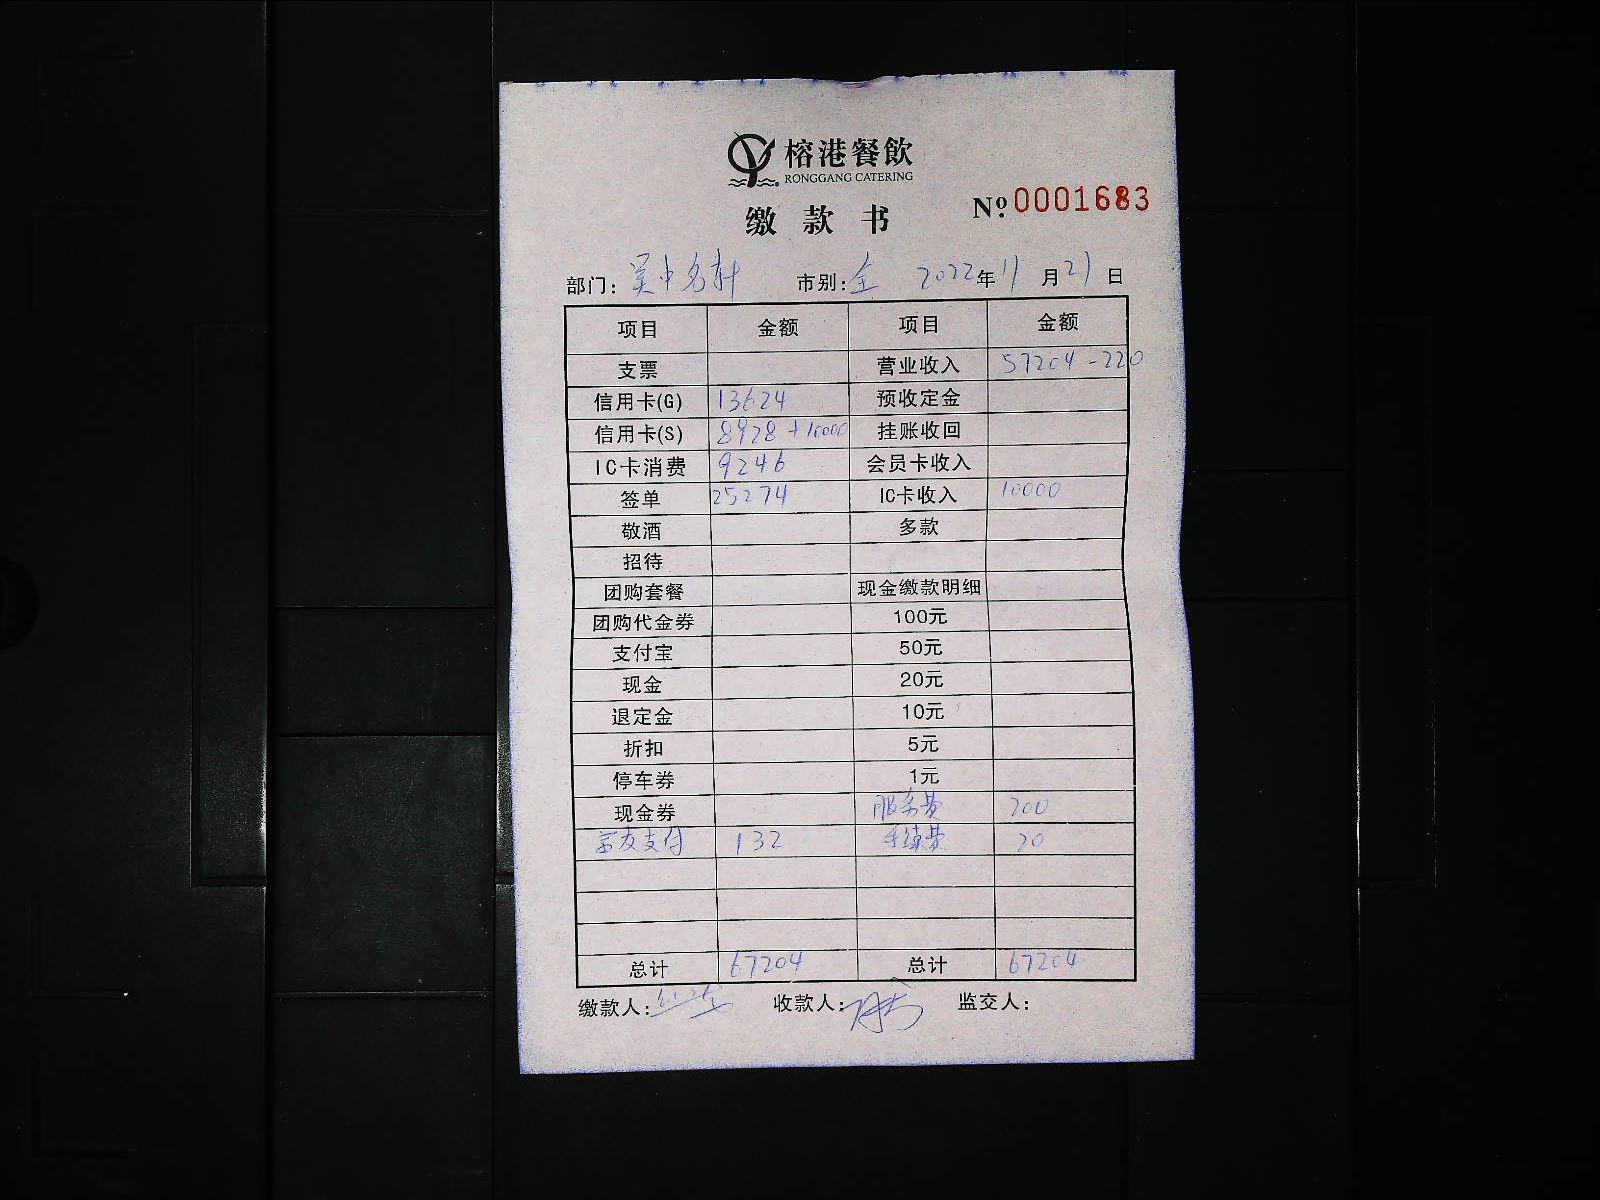 榕港餐飲
RONGGANG CATERING
缴款书 №0001683
部门: 吴中名轩 市别: 全 2022年11月21日
项目 金额 项目 金额
支票 营业收入 57204-220
信用卡(G) 13624 预收定金
信用卡(S) 8928+10000 挂账收回
IC卡消费 9246 会员卡收入
签单 25274 IC卡收入 10000
敬酒 多款
招待
团购套餐 现金缴款明细
团购代金券 100元
支付宝 50元
现金 20元
退定金 10元
折扣 5元
停车券 1元
现金券 服务费 200
支付 132 手续费 20
总计 67204 总计 67204
缴款人: 收款人: 监交人: